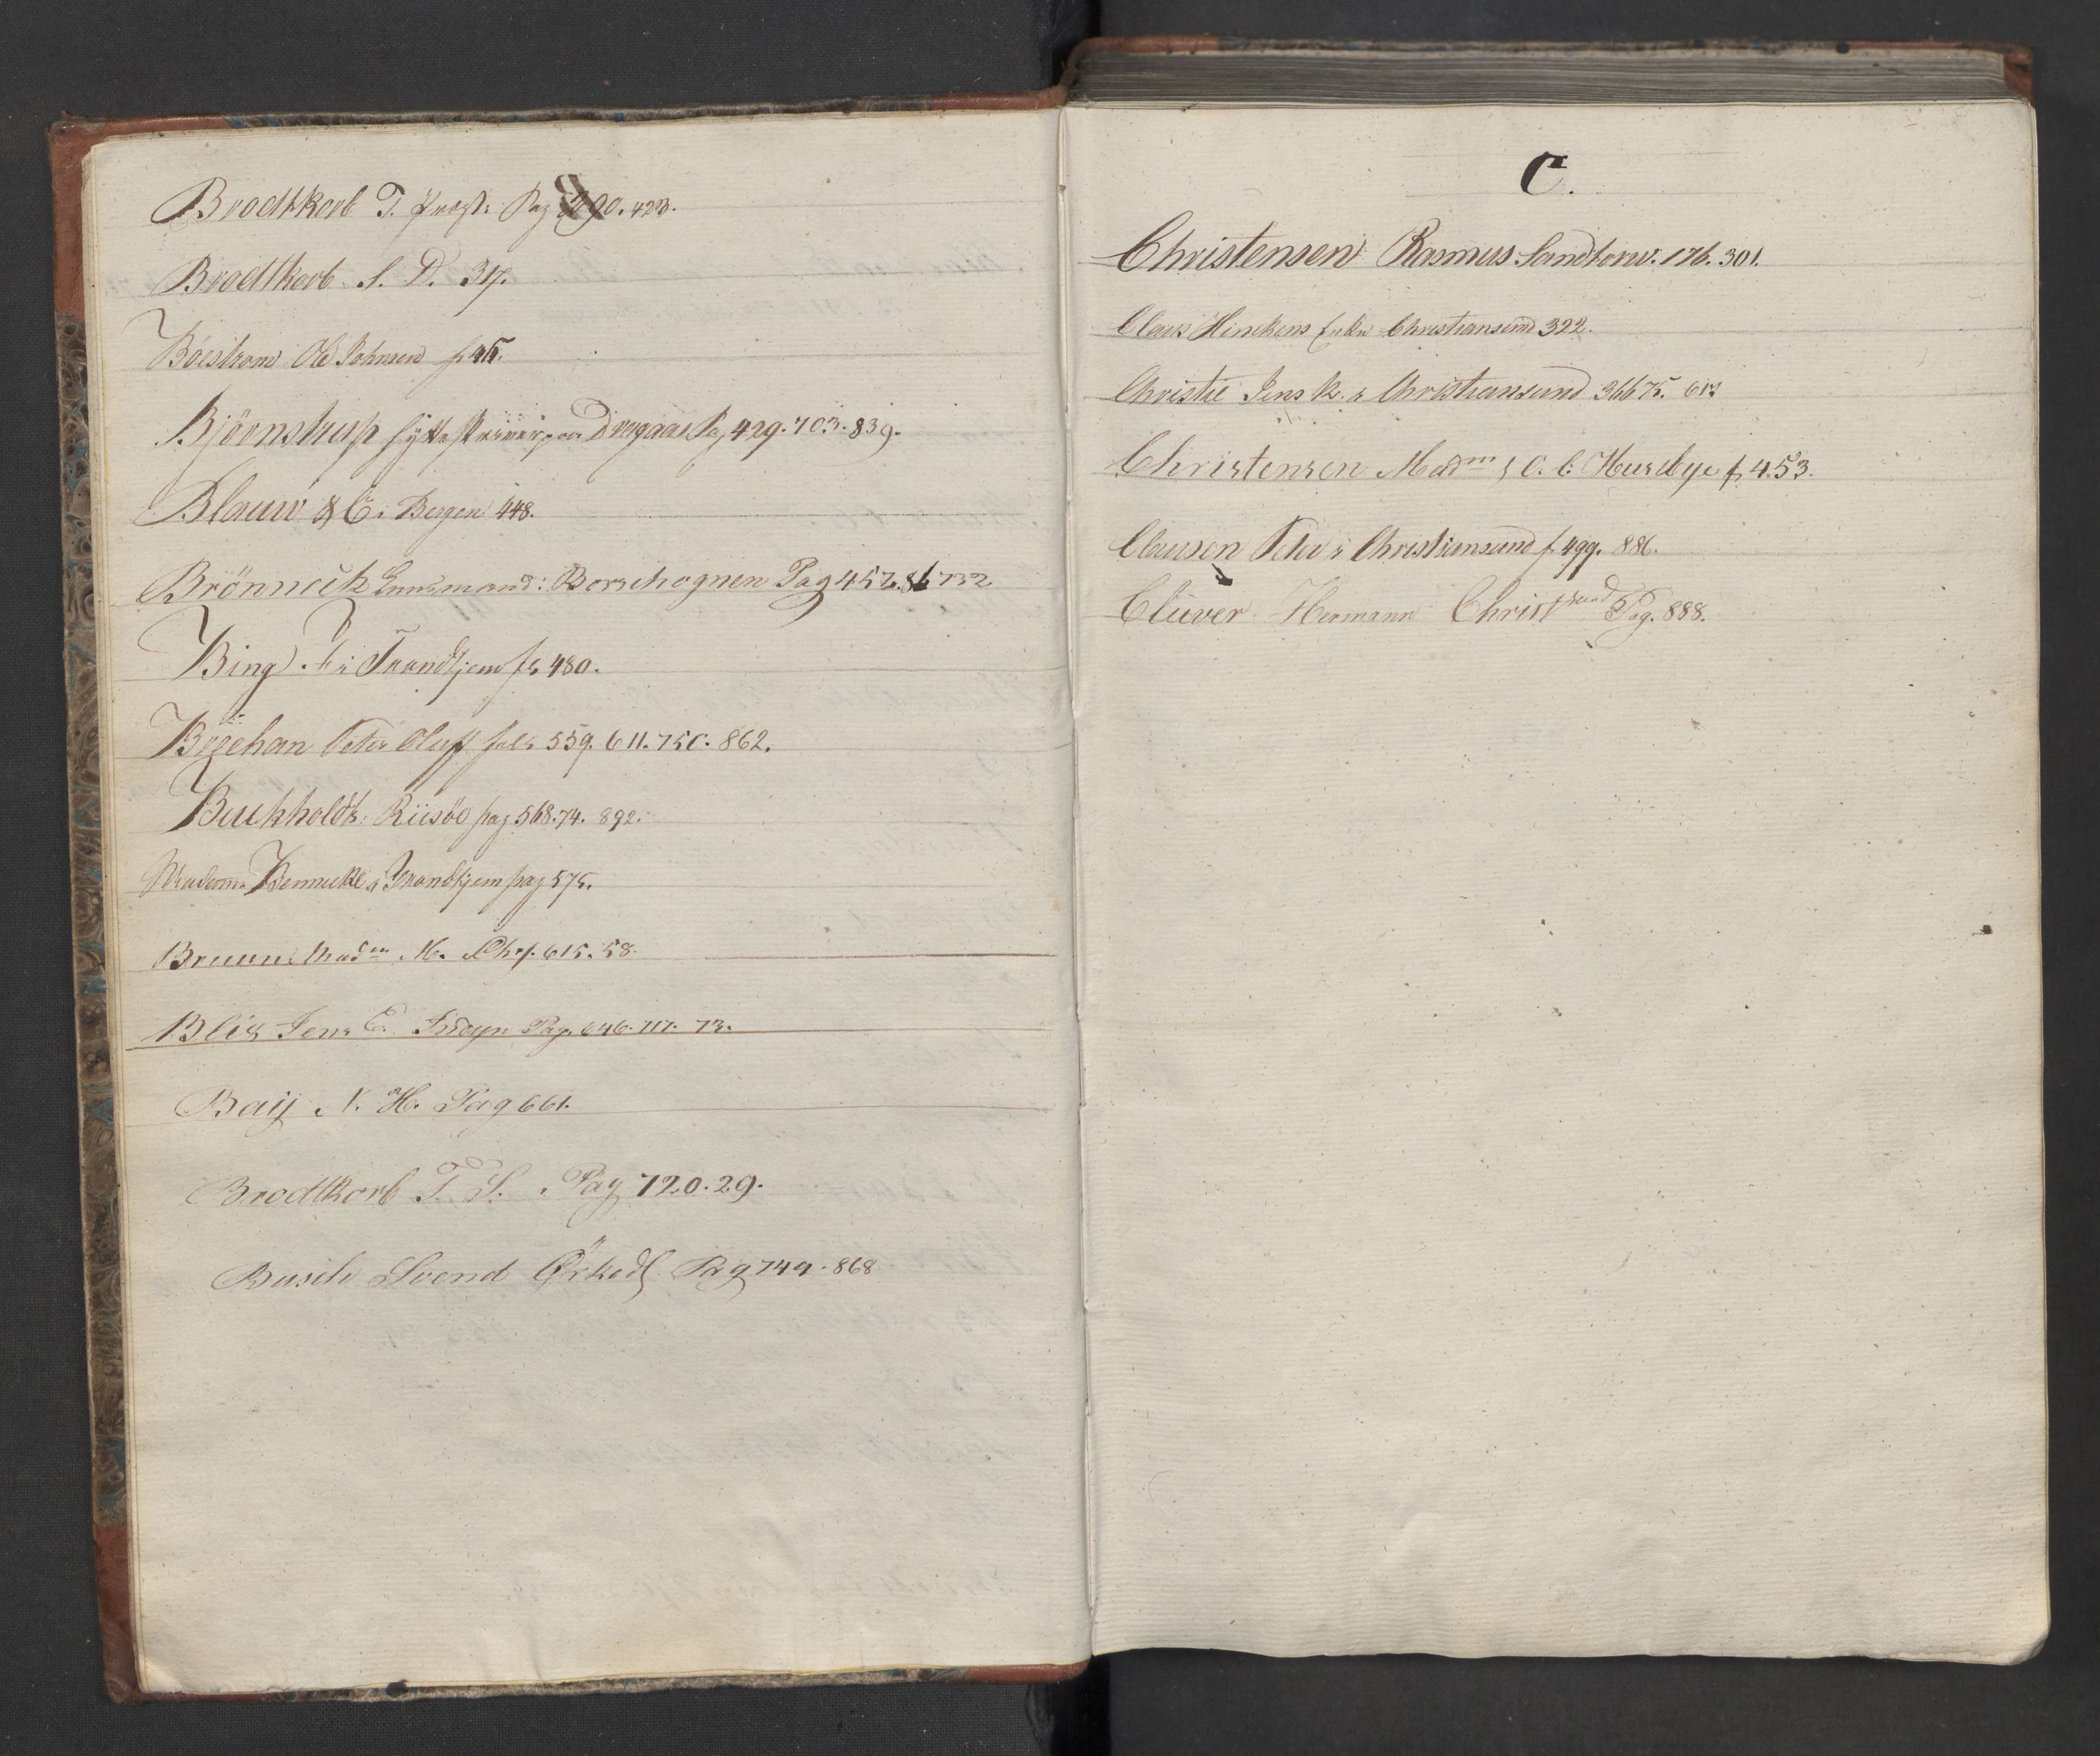 Brodtkorb T. Præst: Pag 423.
Brodtkorb S. D. 317.
Boestrom Ole Johnsen f 415.
Björnstrup Hytteskriver paa Dragaas Pag 429. 703. 839.
Blauw & C: i Bergen 448.
Brönneck Lensmand: Borschognen Pag 457. 86 732
Bing i Trondhjem fo 480.
Brechan Peter Oluf fol: 559. 611. 750. 862.
Buchholdt: Riisöe pag 568. 74. 892.
Madame Bennecke i Trondhjem pag 575.
Bruun Madm M. Chr. 615. 58.
Blix Jens C. Inderøen Pag. 646. 717. 73.
Baij N. H. Pag 661.
Brodtkorb T. S. Pag 720. 29.
Busch Svend Ørkedl Pag 749. 868
C.
Christensen Rasmus Sandtorv. 176. 301.
Claus Hinckens Enke Christiansund 322.
Christie Jens K. i Christiansund 366 75. 613
Christensen Madm i C. C. Husebye f. 453.
Clausen Peter i Christiansund f 499. 886.
Clüver Hermann Christsund Pag. 888.